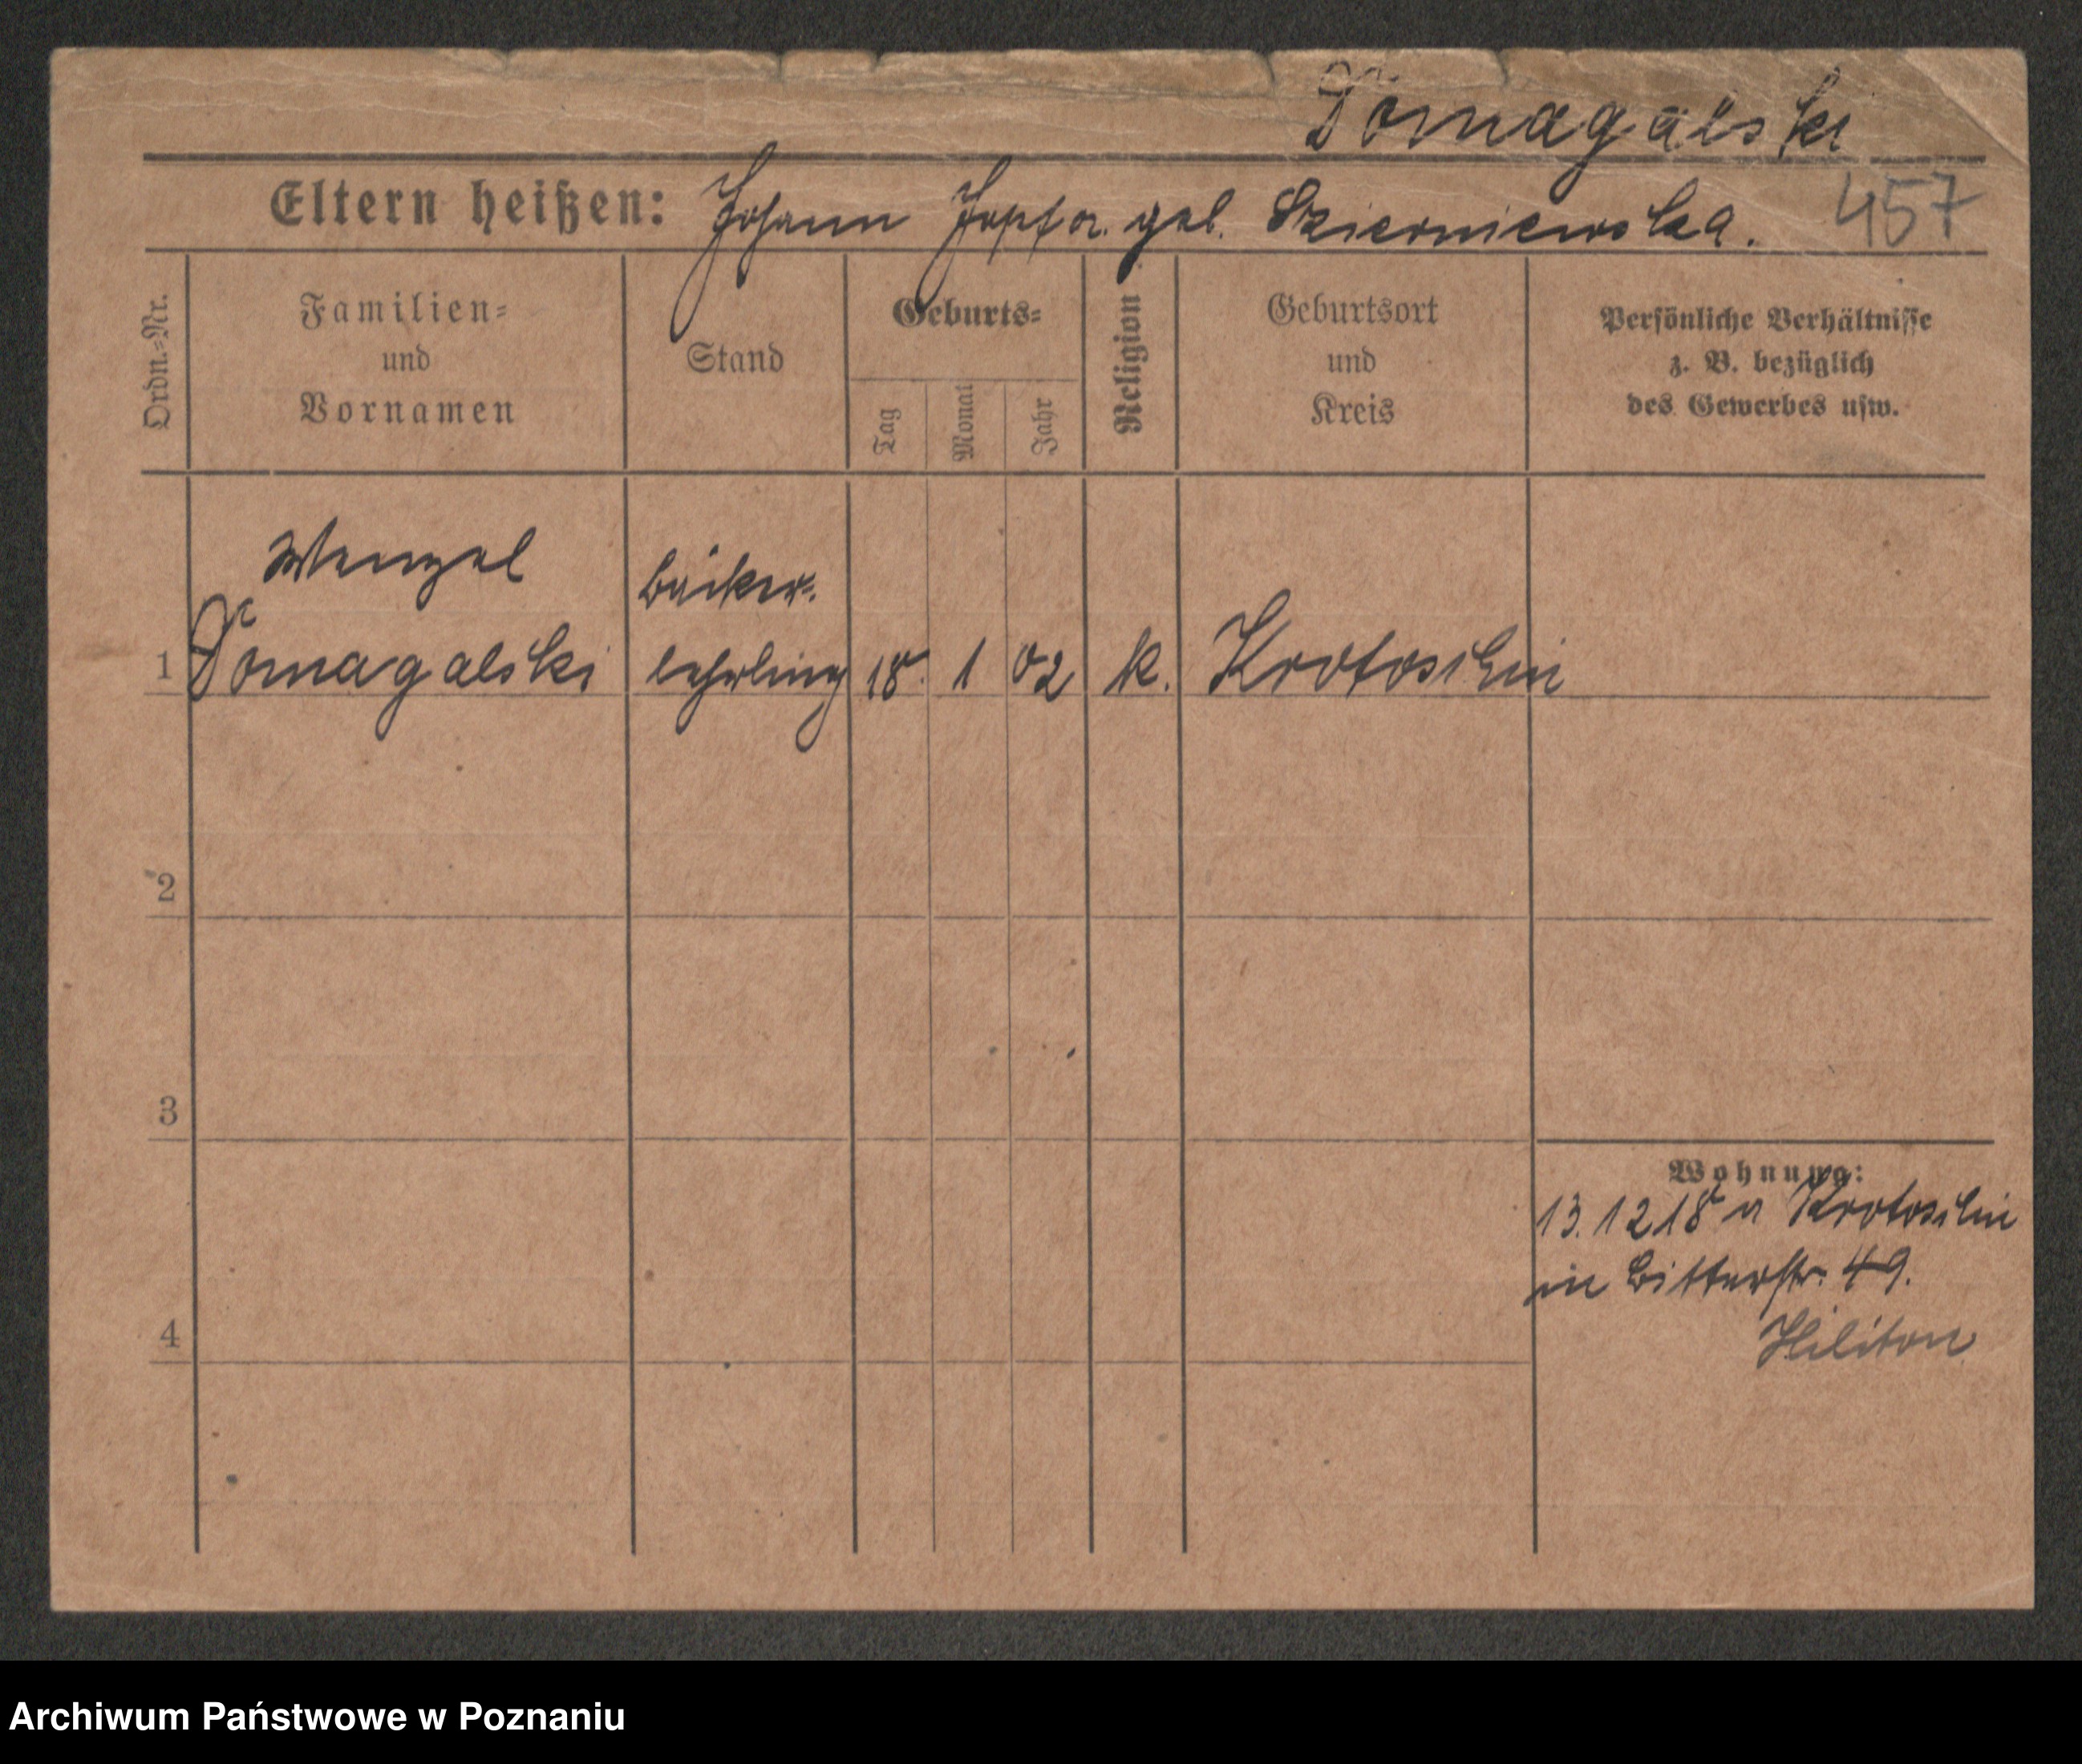 Domagalski
Eltern heißen: Johann Josefa. geb. Skierniewska.
457
Ordn.=Nr.
Familien=
und
Vornamen
Stand
Geburts=
Tag
Monat
Jahr
Religion
Geburtsort
und
Kreis
Persönliche Verhältnisse
z. B. bezüglich
des Gewerbes usw.
Wenzel
Bäcker-
1 Domagalski lehrling 18. 1 02 k. Krotoschin
2
3
Wohnung:
13.12 18 v Krotoschin
in Ritterstr. 49.
4
Archiwum Państwowe w Poznaniu